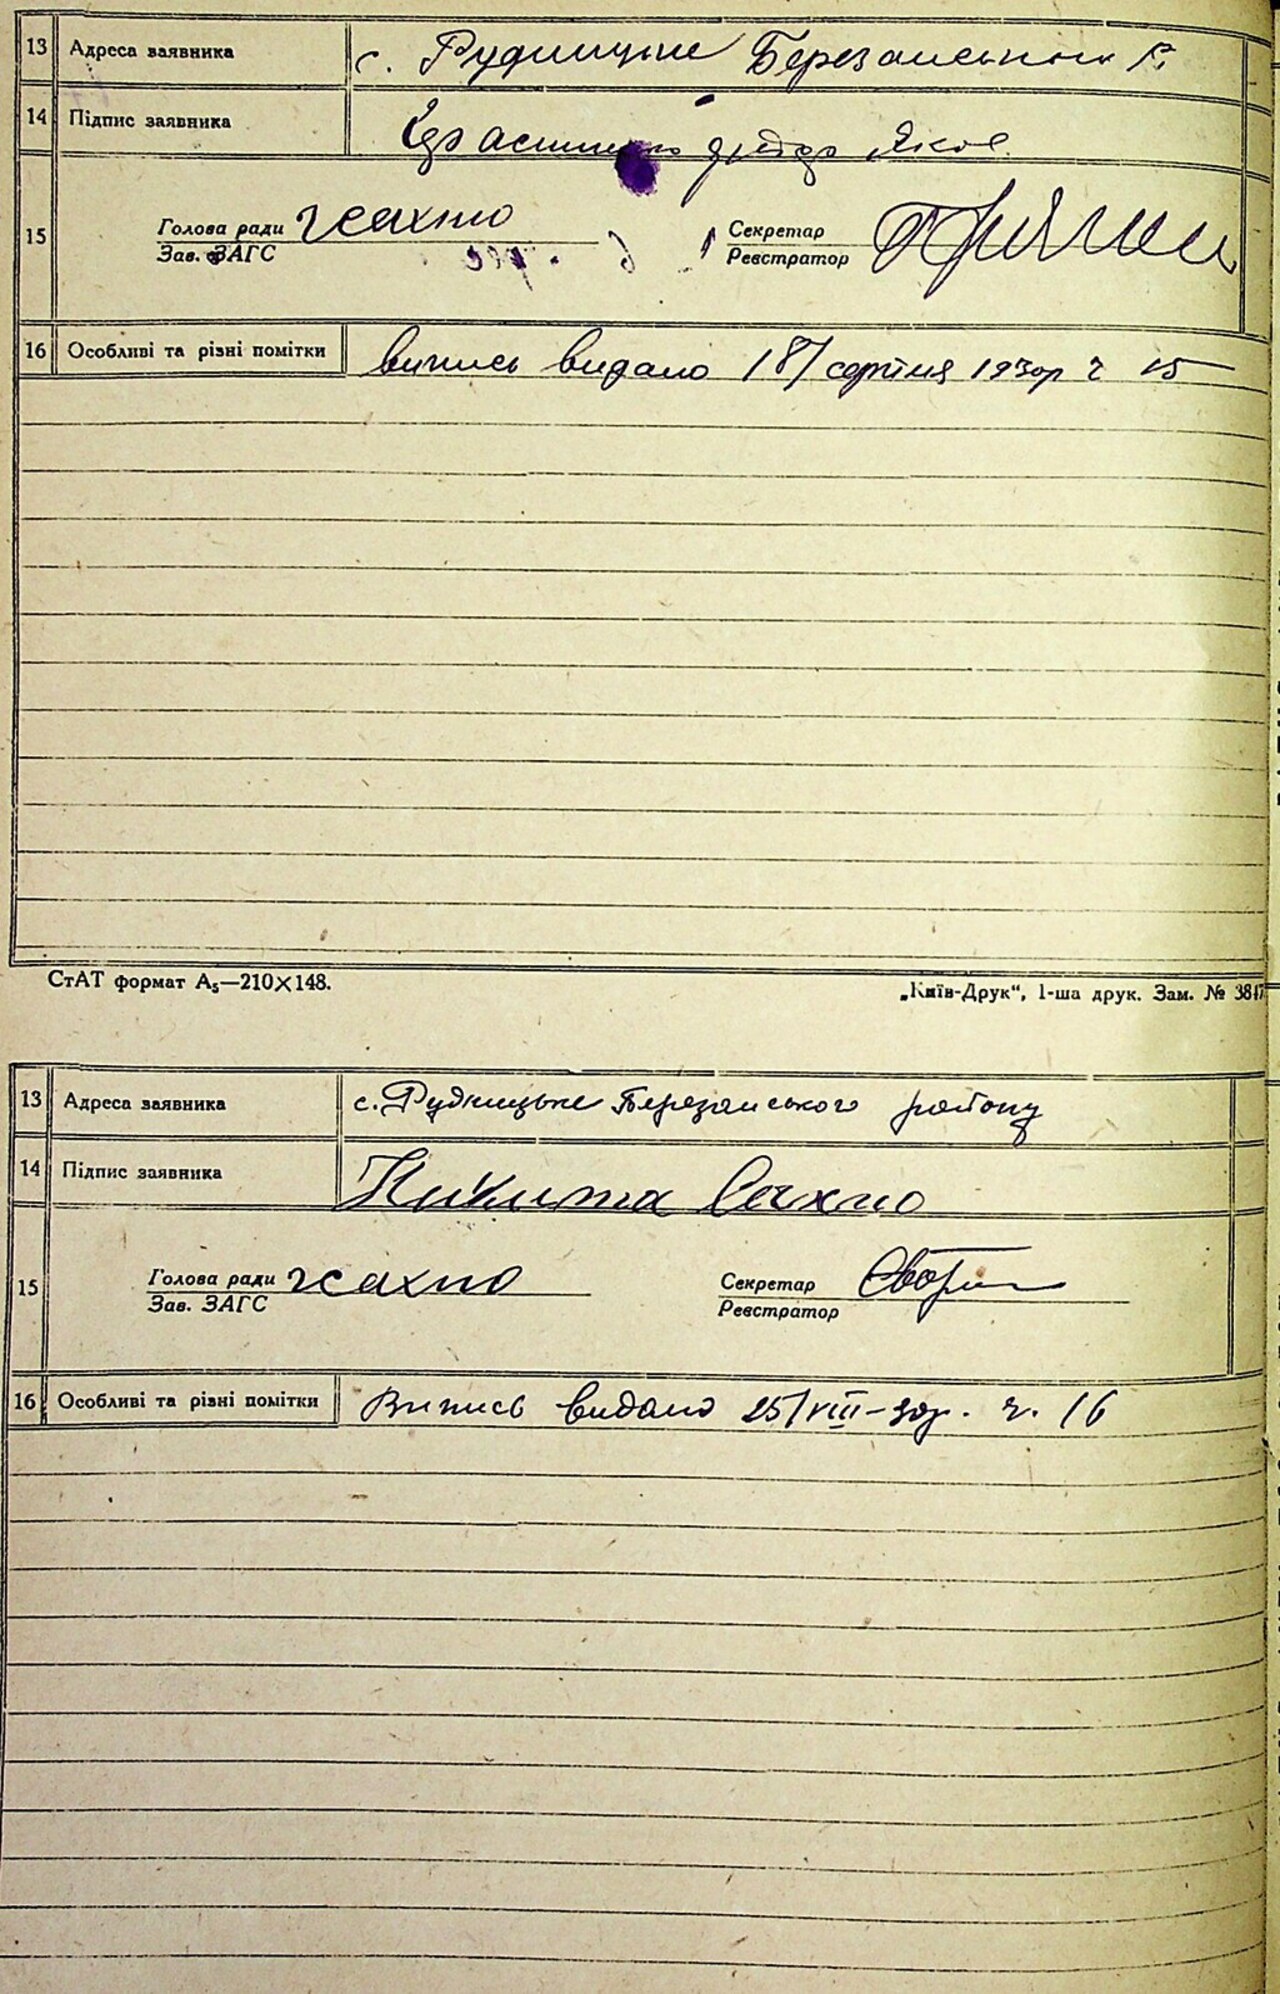 13 Адреса заявника с. Рудницьке Березанського р.
14 Підпис заявника Яков
15 Голова ради Сахно Секретар
Зав. ЗАГС Реєстратор
16 Особливі та різні помітки випись видано 18/ серпня 1930р ч 15
СтАТ формат А₅—210×148. „Київ-Друк“, 1-ша друк. Зам. № 3847
13 Адреса заявника с. Рудницьке Березанського району
14 Підпис заявника Никита Сахно
15 Голова ради Сахно Секретар
Зав. ЗАГС Реєстратор
16 Особливі та різні помітки Випись видано 25/VIII-30р. ч. 16